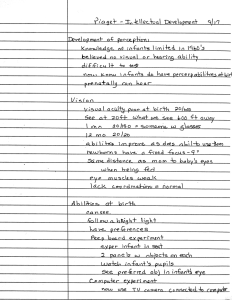 Piaget - Intellectual Development 9/17
Development of perception:
Knowledge of infants limited in 1960's
believed no visual or hearing ability
difficult to
now know infants do have perceptabilities at birth
prenatally can hear
Vision
Visual acuity poor at birth
See at 20ft what we see 600 ft away
1 mo = someone w glasses
12 mo 20/20
abilities improve as dev. abil to use them
newborns have a fixed focus - 9"
Same distance as mom to baby's eyes
when being fed
eye muscles weak
lack coordination = normal
Abilities at birth
can see
follow a bright light
have preferences
Peep board experiment
infant in seat
2 panels w objects on each
Watch infant's pupils
See preferred obj in infant's eye
Computer experiment
now use TV camera connected to computer